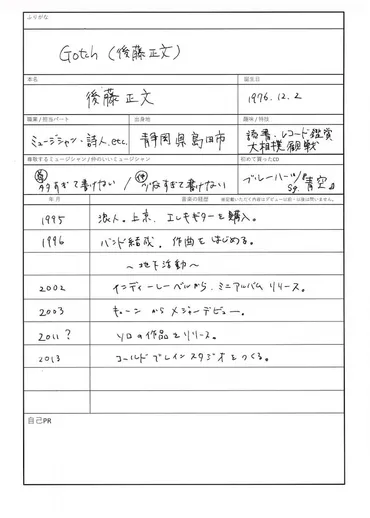 ふりがな
Gotch (後藤正文)
本名
生年日
後藤 正文
1976. 12. 2
職業 / 担当パート
出身地
趣味 / 特技
ミュージシャン・詩人. etc.
静岡県島田市
読書・レコード鑑賞
大相撲観戦
尊敬するミュージシャン / 仲のいいミュージシャン
初めて買ったCD
尊 多すぎて書けない / 仲 少なすぎて書けない
ブルーハーツ
Sg. 青空
年 月
音楽の経歴
1995 浪人. 上京. エレキギターを購入。
1996 バンド結成. 作曲をはじめる。
〜地下活動〜
2002 インディーレーベルから、ミニアルバムリリース。
2003 キューンからメジャーデビュー。
2011? ソロの作品をリリース。
2013 コールドブレインスタジオをつくる。
自己PR